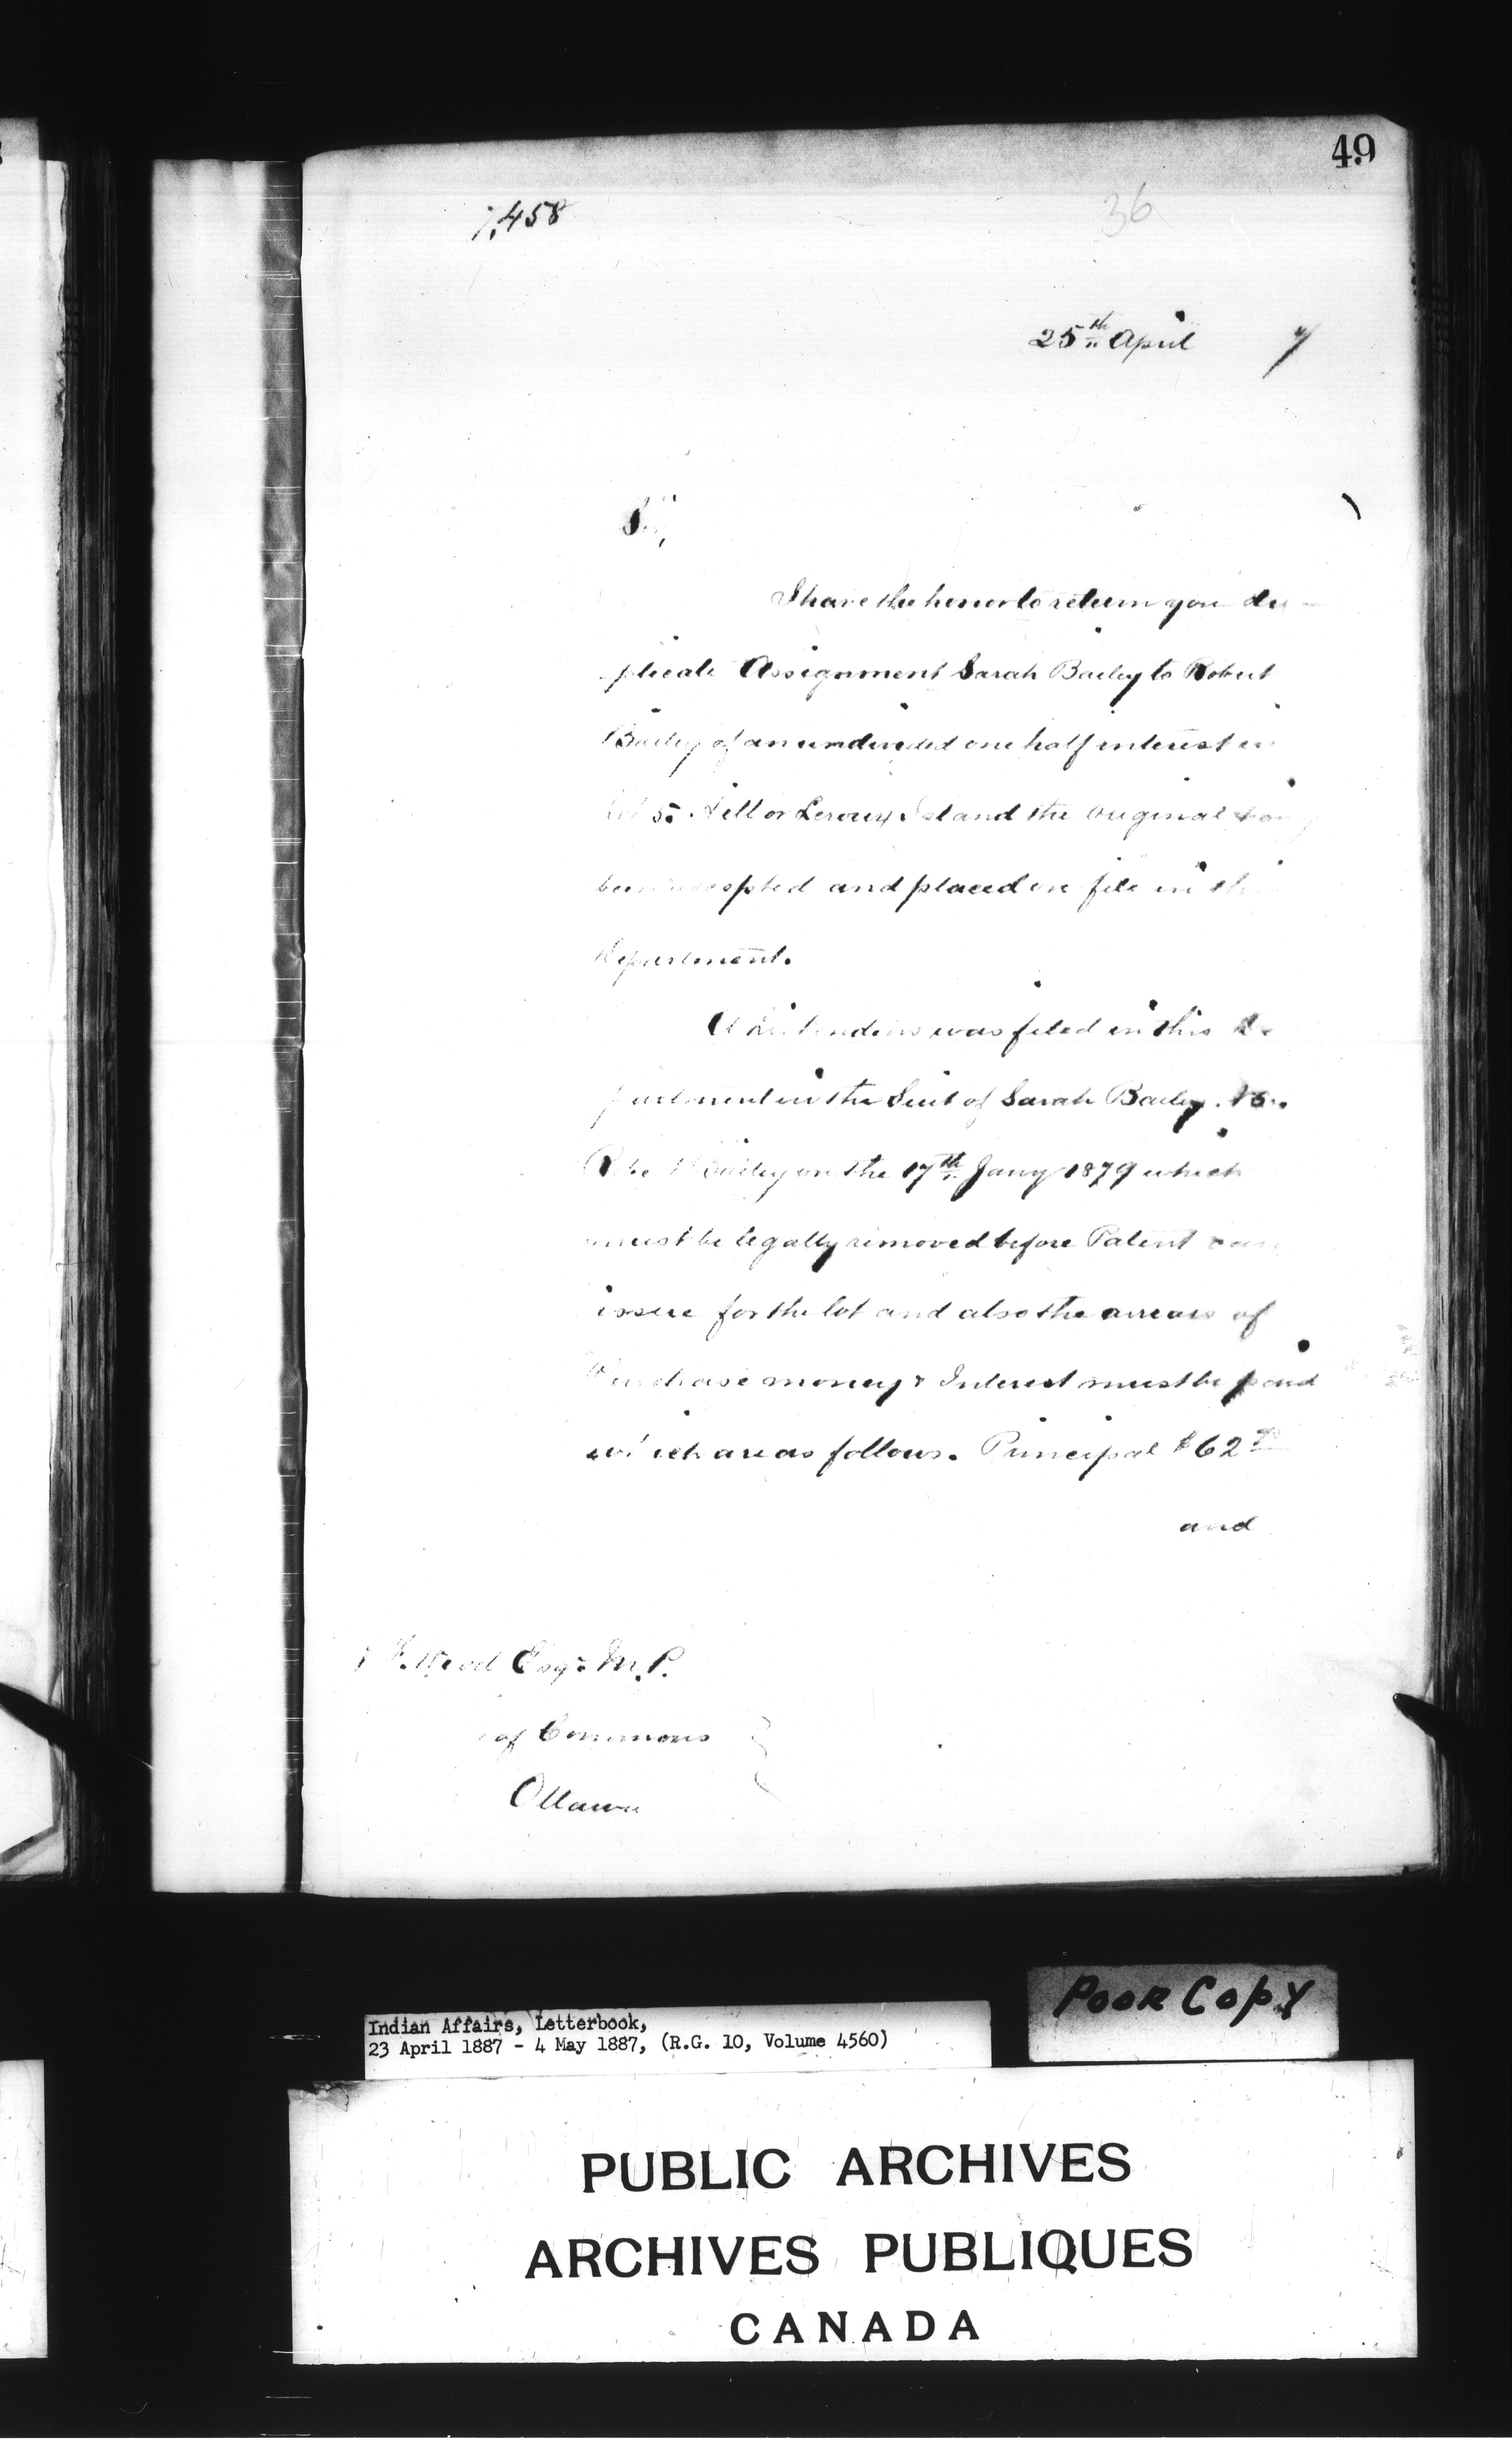 49
7,458
36
25th April 7
Sir,
I have the honor to return you du-
plicate Assignment Sarah Bailey to Robert
Bailey of an undivided one half interest in
Lot 5. or Leroux Island the original
been accepted and placed on file in this
department.
A was filed in this De
partment in the Suit of Sarah Bailey. vs.
Robert Bailey on the 17th Jany 1879 which
must be legally removed before Patent can
issue for the lot and also the arrears of
Purchase money & Interest must be paid
which are as follows. Principal $62
and
Esqr M.P.
of Commons
Ottawa
Poor Copy
Indian Affairs, Letterbook,
23 April 1887 - 4 May 1887, (R.G. 10, Volume 4560)
PUBLIC ARCHIVES
ARCHIVES PUBLIQUES
CANADA